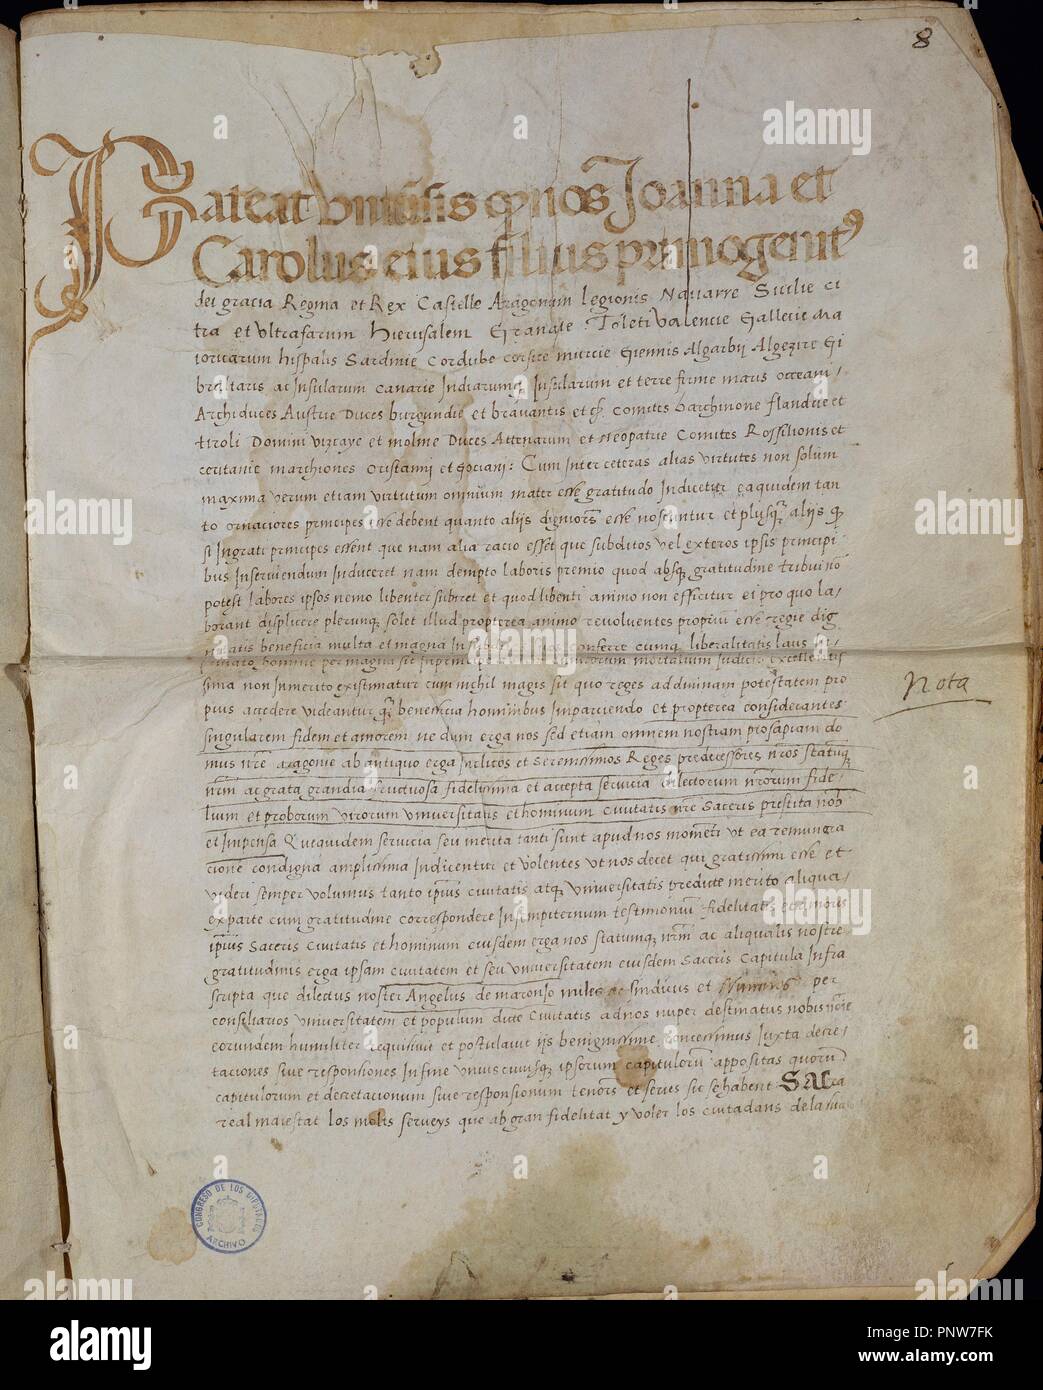 8
Pateat universis q nos Joanna et
Carolus eius filius primogenit9
dei gracia Regina et Rex Castelle Aragonum Legionis Navarre Sicilie ci
tra et ultrafarum hierusalem Granate Toleti Valencie Gallecie Ma
ioricarum hispalis Sardinie Cordube corsice murcie Giennis Algarbij Algezire Gi
braltaris ac Insularum Canarie Indiarumq Insularum et terre firme maris occeani
Archiduces Austrie Duces burgundie et bravantis et c comites barchinone flandrie et
tiroli Domini vizcaye et moline Duces Attenarum et Neopatrie Comites Rossilionis et
ceritanie marchiones oristanni et gociani: Cum inter ceteras alias virtutes non solum
maxima verum etiam virtutum omnium mater esse gratitudo Indicetur ea quidem tan
to ornaciores principes esse debent quanto alijs digniores esse noscuntur et plusq alijs q
si Ingrati principes essent que nam alia racio esset que subditos vel exteros ipsis principi
bus Inserviendum Induceret nam dempto laboris premio quod absq gratitudine tribui no
potest labores ipsos nemo libenter subiret et quod libenti animo non efficitur ei pro quo la
borant displicere plerunq solet illud propterea animo revolventes propriu esse regie dig
nitatis beneficia multa et magna In conferre cumq liberalitatis laus in
homine per magna sit in principe mortalium Judicio excellentis
sima non inmerito existimatur cum nichil magis sit quo reges ad divinam potestatem pro
pius accedere videantur q beneficia hominibus Impartiendo et propterea considerantes
singularem fidem et amorem ne dum erga nos sed etiam omnem nostram prosapiam do
mus nre aragonie ab antiquo erga Inclitos et Serenissimos Reges predecessores nros statumq
nrm ac grata grandia fructuosa fidelissima et accepta servicia dilectorum nrorum fide
lium et proborum virorum universitatis et hominum civitatis nre Saceris prestita nob
et Impensa Quequidem servicia seu merita tanti sunt apud nos momenti ut ea remunera
cione condigna amplissima Indicentur et volentes ut nos decet qui gratissimi esse et
videri semper volumus tanto ipsius civitatis atq universitatis predicte merito aliqua
ex parte cum gratitudine correspondere In sempiternum testimoniu fidelitatis et amoris
ipsius Saceris Civitatis et hominum eiusdem erga nos statumq nrm ac aliqualis nostre
gratitudinis erga ipsam civitatem et seu universitatem eiusdem Saceris Capitula Infra
scripta que dilectus noster Angelus de marongio miles ac sindicus et Nuncius per
consiliarios universitatem et populum dicte Civitatis ad nos nuper destinatus nobis noie
eorundem humiliter requisivit et postulavit ijs benignissime concessimus Juxta decre
taciones sive responsiones In fine unius cuiusq ipsorum capituloru appositas quoru
capitulorum et decretacionum sive responsionum tenores et series sic se habent Sacra
real maiestat los molts serveys que ab gran fidelitat y voler los ciutadans de la sua
Nota
CONGRESO DE LOS DIPUTADOS
ARCHIVO
alamy
Image ID: PNW7FK
www.alamy.com